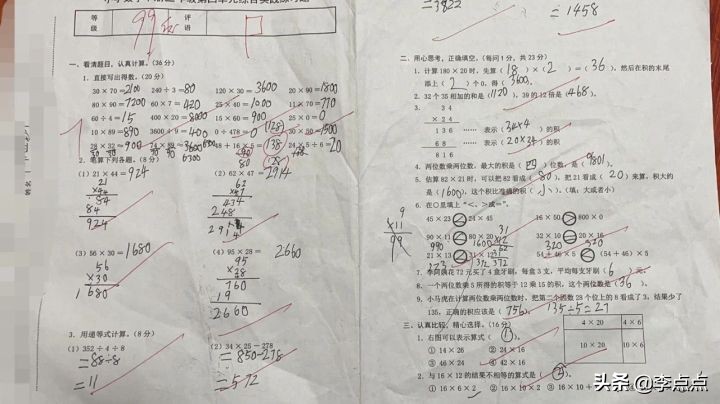 等级
99
评语
一、看清题目，认真计算。(36分)
1. 直接写出得数。(20分)
30×70=2100 240÷3=80 120×30=3600 20×90=1800
80×90=7200 60×7=420 25×40=1000 11×70=770
60÷4=15 400×20=8000 15×60=900 25×0=0
10×89=890 3600÷9=400 0÷478=0 30×50=1500
2. 笔算下列各题。(8分)
(1) 21×44=924 (2) 62×47=2914
21
×44
84
84
924
62
×47
434
248
(3) 56×30=1680 (4) 95×28=2660
56
×30
1680
95
×28
760
19
2660
3. 用递等式计算。(8分)
(1) 352÷4÷8 (2) 34×25-278
=88÷8 =850-278
=11 =572
=1458
二、用心思考，正确填空。(每问1分，共23分)
1. 计算180×20时，先算(18)×(2)=(36)，然后在积的末尾
添上(2)个0，得(3600)。
2. 32个35相加的和是(1120)，39的12倍是(468)。
3. 34
×24
136 …… 表示(34×4)的积
68 …… 表示(20×34)的积
816
4. 两位数乘两位数，最大的积是(四)位数，是(9801)。
5. 估算82×21时，可以把82看成(80)，把21看成(20)来算，积大约
是(1600)，这个积比准确的积(小)。(填：大或者小)
6. 在○里填上“<、>或=”。
45×23 24×45 16×50 800×0
90×11 80×20 32×10 20×16
21×13 31×12 54+46×5 (54+46)×5
7. 李阿姨花72元买了4盒牙刷，每盒3支，平均每支牙刷(6)元。
8. 一个两位数乘5所得的积等于12乘15的积，这个两位数是(36)。
9. 小马虎在计算两位数乘两位数时，把第二个因数28个位上的8看成了3，结果少了
135，正确的积应该是(756)。135÷5=27
三、认真比较，精心选择。(16分)
1. 右图可以表示算式(①)。
① 14×26 ② 24×16
③ 46×24 ④ 16×26
4×20 4×6
10×20 10×6
2. 与16×12的结果不相等的算式是(②)。
① 16×6×2 ② 16×10×2 ③ 16×10+
头条 @李点点